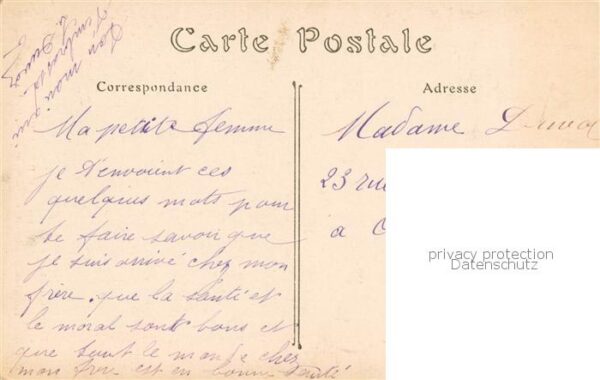 Carte Postale
Correspondance
Adresse
Ton mari
t'embrasse
Ma petite femme
je t'envoient ces
quelques mots pour
te faire savoir que
je suis arrivé chez mon
frère. que la santé et
le moral sont bons et
que tout le monde chez
mon frère est en bonne santé
Madame
23 rue
à
privacy protection
Datenschutz